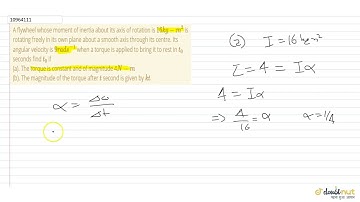 10964111
A flywheel whose moment of inertia about its axis of rotation is 16kg − m² is
rotating freely in its own plane about a smooth axis through its centre. Its
angular velocity is 9rads⁻¹ when a torque is applied to bring it to rest in t₀
seconds find t₀ if
(a). The torque is constant and of magnitude 4N − m
(b). The magnitude of the torque after t second is given by kt
(2) I = 16 kg-m²
τ = 4 = Iα
4 = Iα
⇒ 4/16 = α α = 1/4
α = Δω/Δt
doubtnut